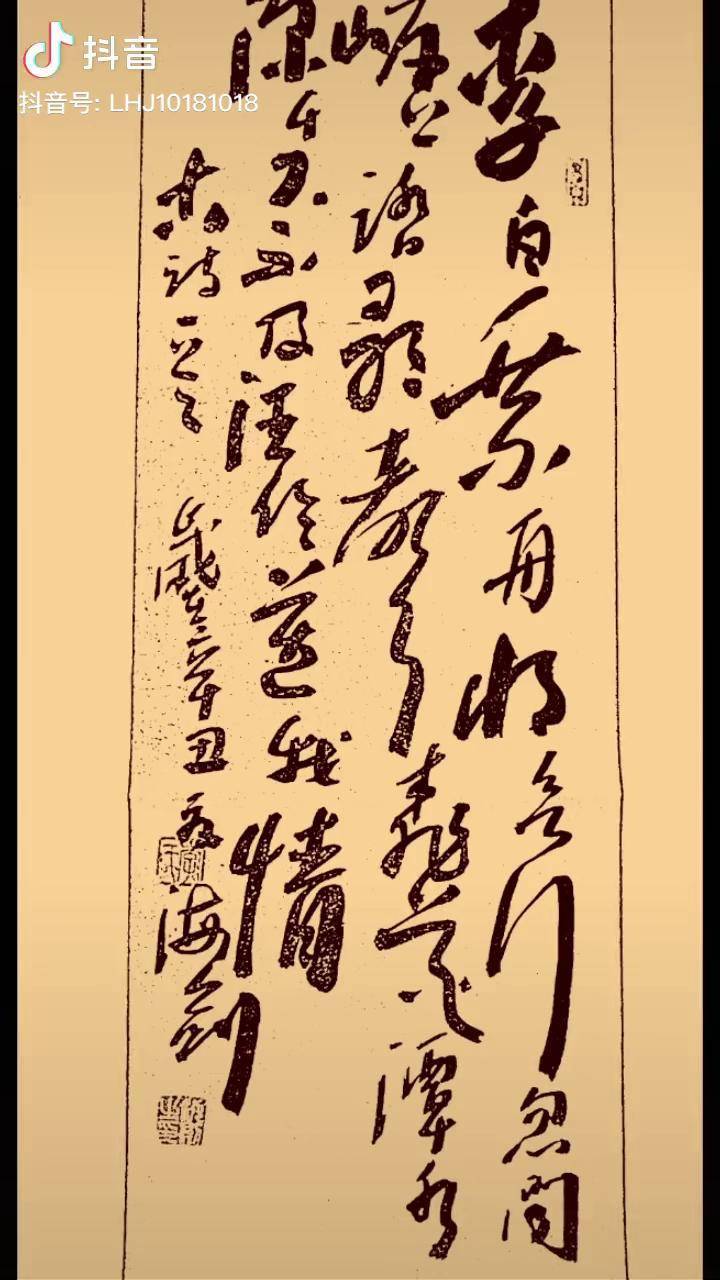 抖音
抖音号: LHJ10181018
李白乘舟将欲行忽闻
岸上踏歌声桃花潭水
深千尺不及汪伦送我情
古诗一首 岁在辛丑 海剑